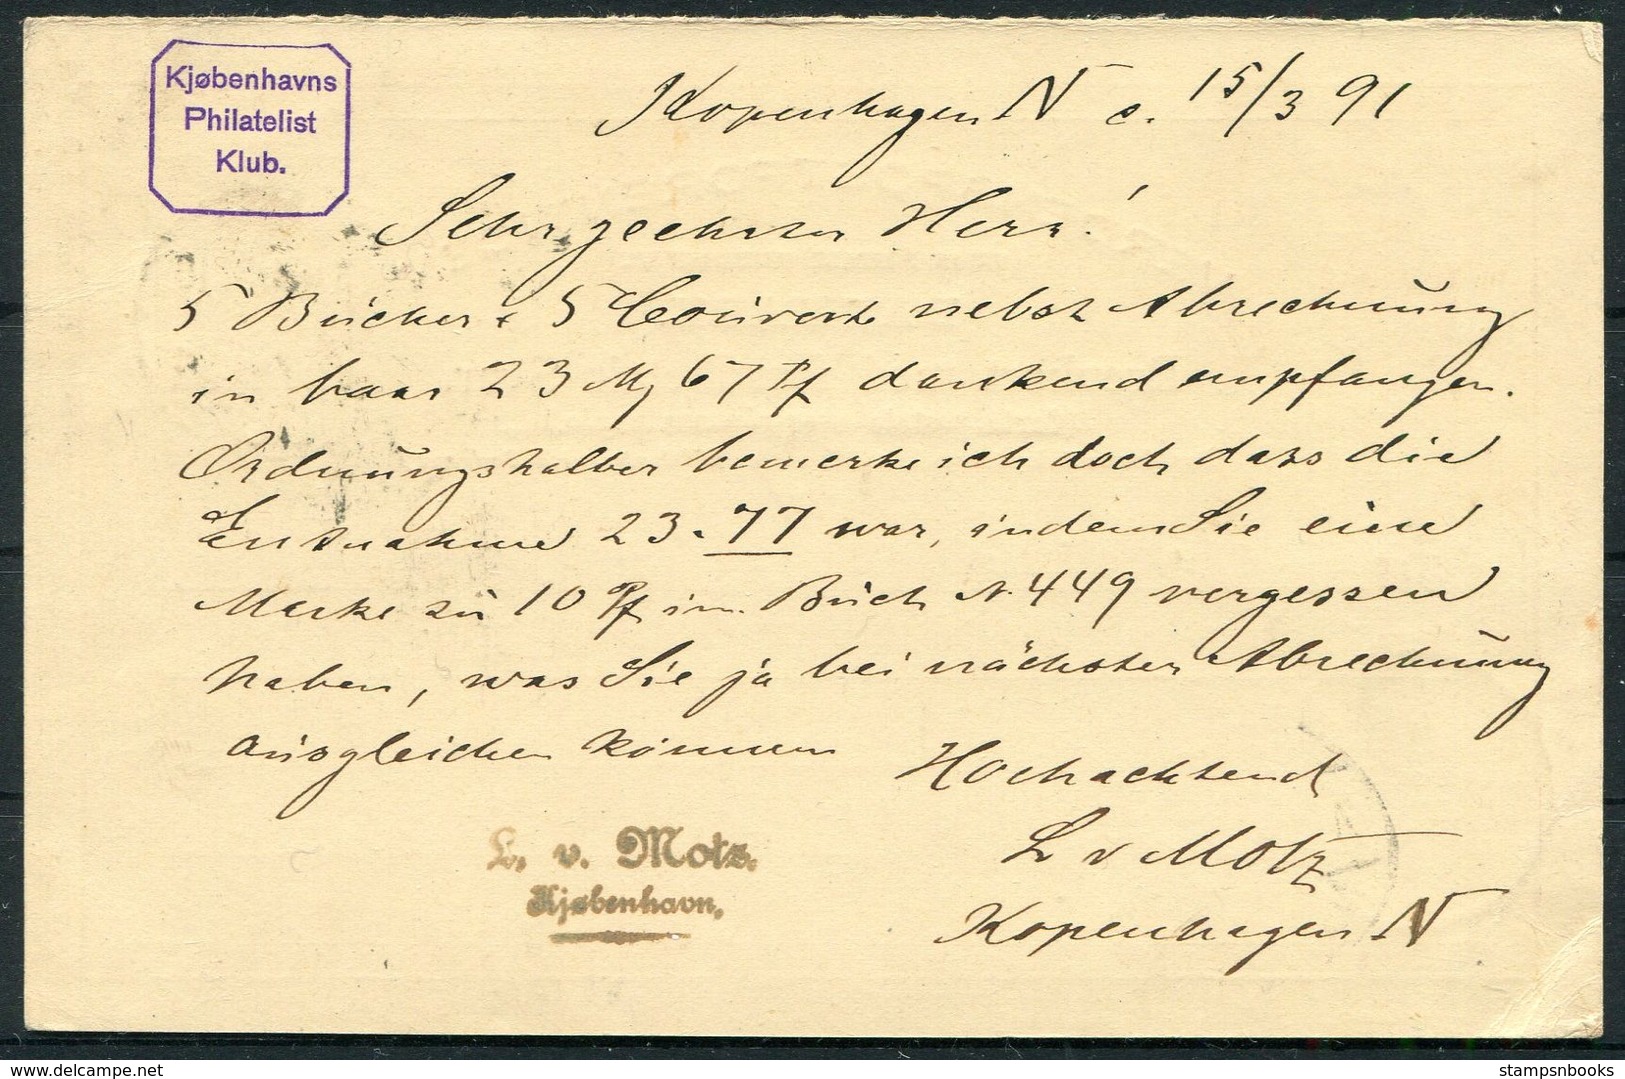 Kjøbenhavns
Philatelist
Klub.
Kopenhagen N d. 15/3 91
Sehr geehrter Herr!
5 Bücher & 5 Couverts nebst Abrechnung
in baar 23 M 67 Pf dankend empfangen.
Ordnungshalber bemerke ich doch dass die
Entnahme 23.77 war, indem Sie eine
Marke zu 10 Pf im Buch N. 449 vergessen
haben, was Sie ja bei nächster Abrechnung
ausgleichen können
Hochachtend
L v Motz
Kopenhagen N
L. v. Motz.
Kjøbenhavn.
© The Stamp Centre
stampsnbooks